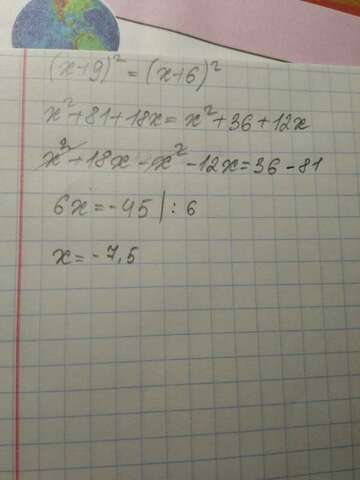 (x+9)² = (x+6)²
x²+81+18x=x²+36+12x
x²+18x-x²-12x=36-81
6x=-45 | : 6
x=-7,5